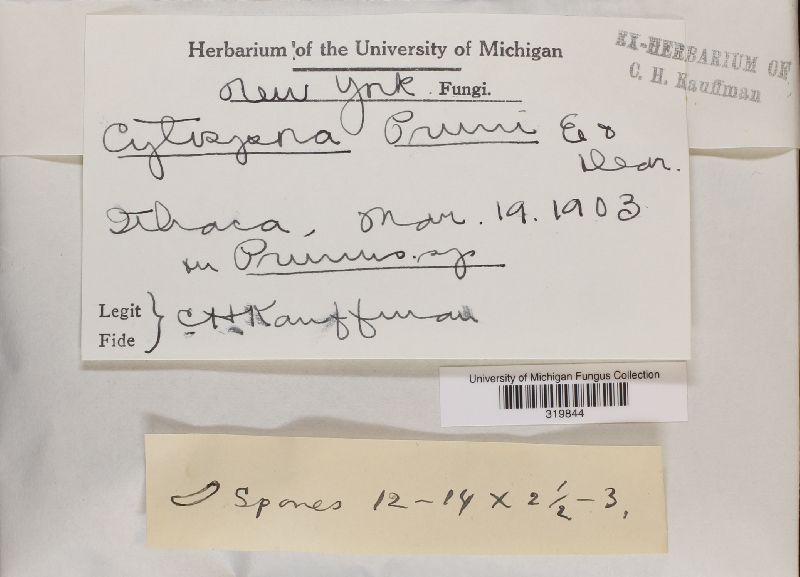 Herbarium of the University of Michigan
EX-HERBARIUM OF
C. H. Kauffman
New York Fungi.
Cytospora Pruni E &
Dear.
Ithaca, Mar. 19. 1903
on Prunus. sp
Legit
Fide
CHKauffman
University of Michigan Fungus Collection
319844
Spores 12-14 x 2 1/2 - 3.